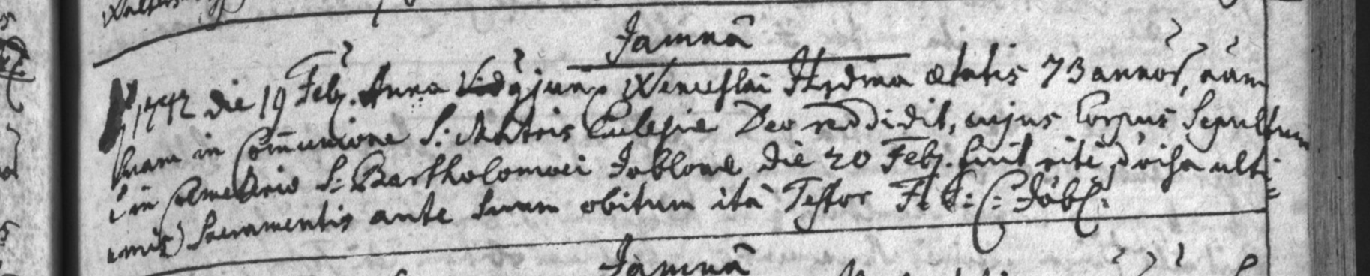 Jamnâ
1742 die 19 Feb. Anna Wenceslai Hrdina ætatis 73 annor, aām
suam in Com̄unione S: Matris Eulesiæ Deo reddidit, cujus Corpus Sepultum
in Cœmeterio S: Bartholomæi Jablone die 20 Feb. fuit ritè, ulti-
mis Sacramentis ante suum obitum ità Testor
Jamnâ